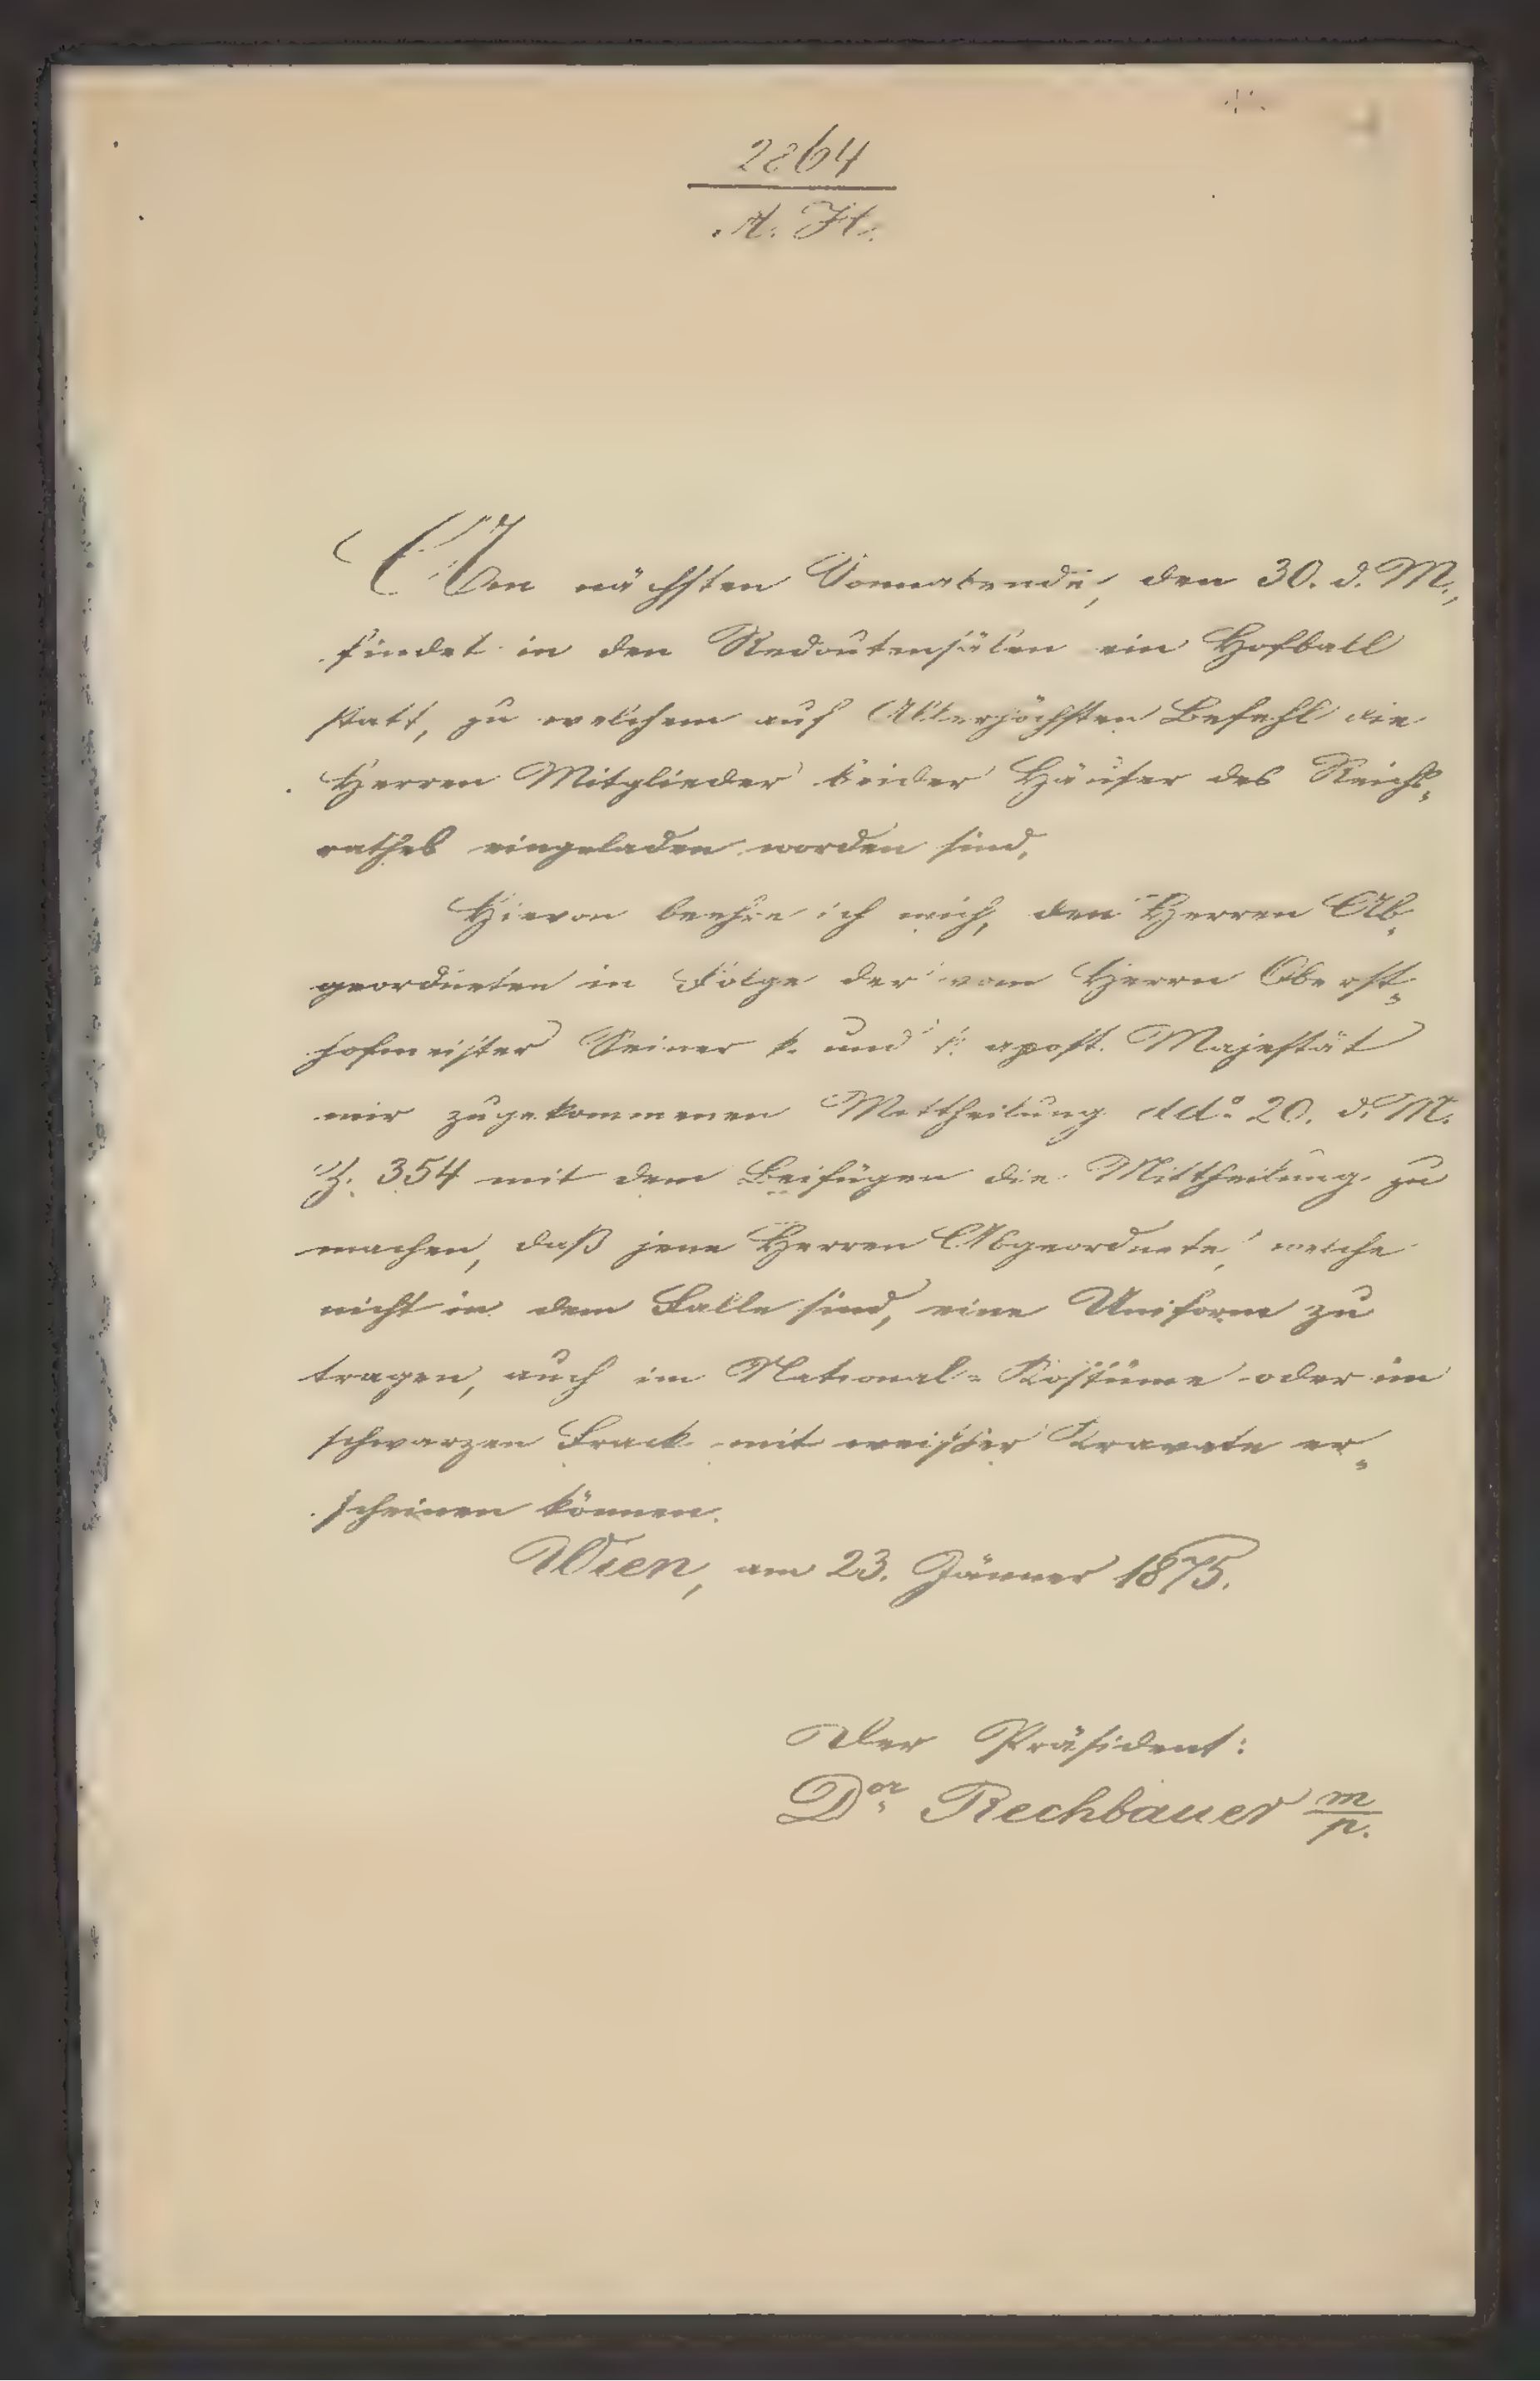 2864
A. H.
Am nächsten Sonnabende, den 30. d. M.,
findet in den Redoutensälen ein Hofball
statt, zu welchem auf Allerhöchsten Befehl die
Herren Mitglieder beider Häuser des Reichs-
rathes eingeladen worden sind.
Hievon beehre ich mich, den Herren Ab-
geordneten in Folge der vom Herrn Oberst-
hofmeister Seiner k. und k. apost. Majestät
mir zugekommenen Mittheilung ddo. 20. d. M.
Z. 354 mit dem Beifügen die Mittheilung zu
machen, daß jene Herren Abgeordnete, welche
nicht in dem Falle sind, eine Uniform zu
tragen, auch im National-Kostüme oder im
schwarzen Frack mit weisser Kravate er-
scheinen können.
Wien, am 23. Jänner 1875.
Der Präsident:
Dor. Rechbauer m/p.